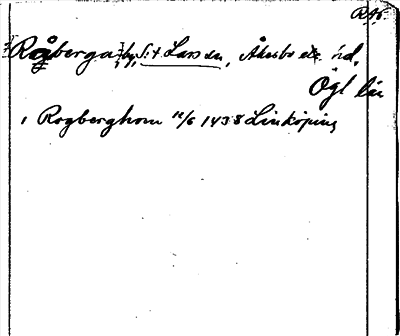 RAp.
Rågberga, by, S:t Lars sn, Åkerbo etc. hd,
Ögl län
i Rogberghom 12/6 1438 Linköping